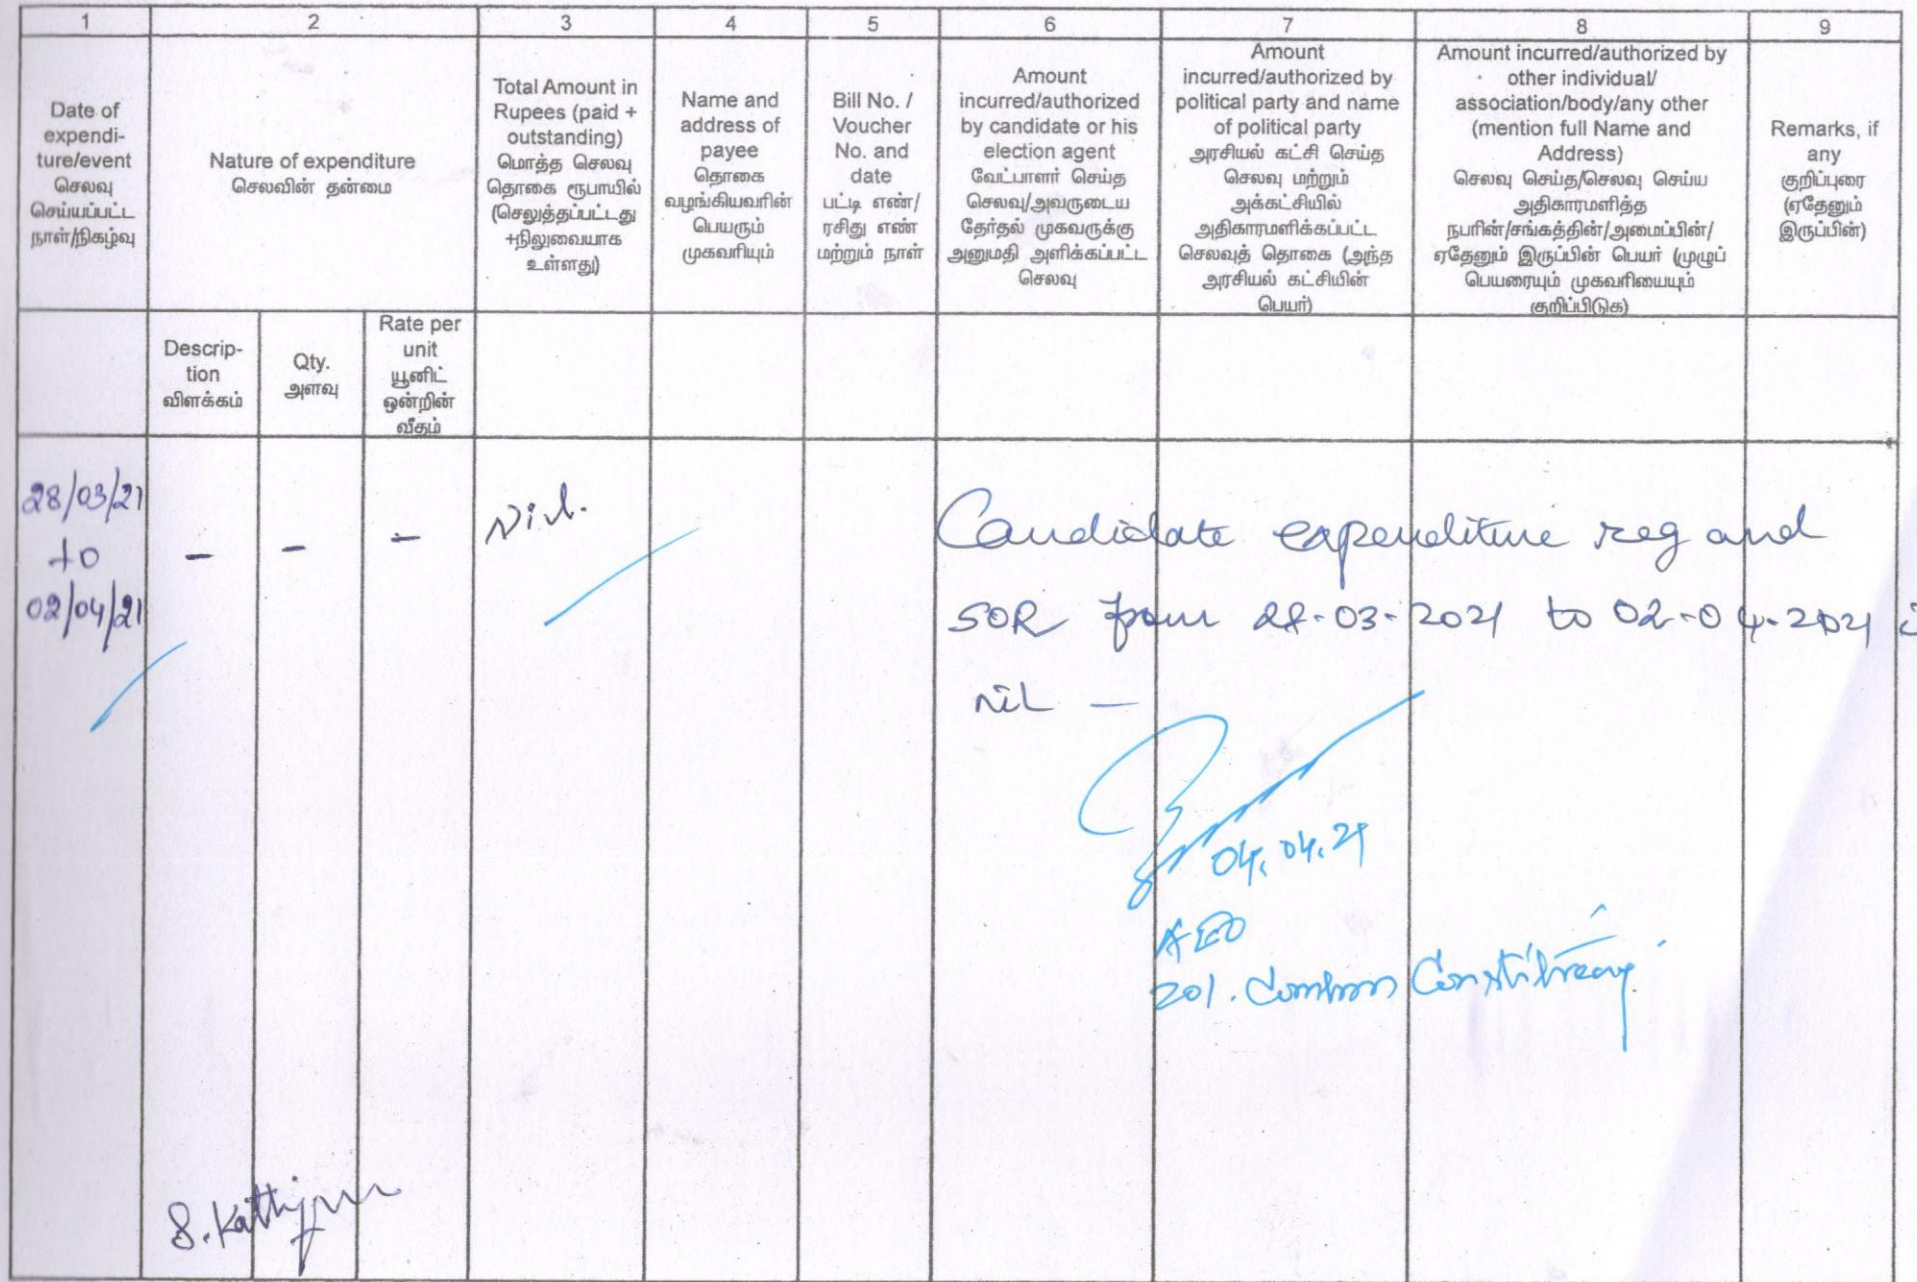 1 2 3 4 5 6 7 8 9
Date of
expendi-
ture/event
செலவு
செய்யப்பட்ட
நாள்/நிகழ்வு
Nature of expenditure
செலவின் தன்மை
Total Amount in
Rupees (paid +
outstanding)
மொத்த செலவு
தொகை ரூபாயில்
(செலுத்தப்பட்டது
+நிலுவையாக
உள்ளது)
Name and
address of
payee
தொகை
வழங்கியவரின்
பெயரும்
முகவரியும்
Bill No. /
Voucher
No. and
date
பட்டி எண்/
ரசிது எண்
மற்றும் நாள்
Amount
incurred/authorized
by candidate or his
election agent
வேட்பாளர் செய்த
செலவு/அவருடைய
தேர்தல் முகவருக்கு
அனுமதி அளிக்கப்பட்ட
செலவு
Amount
incurred/authorized by
political party and name
of political party
அரசியல் கட்சி செய்த
செலவு மற்றும்
அக்கட்சியில்
அதிகாரமளிக்கப்பட்ட
செலவுத் தொகை (அந்த
அரசியல் கட்சியின்
பெயர்)
Amount incurred/authorized by
other individual/
association/body/any other
(mention full Name and
Address)
செலவு செய்த/செலவு செய்ய
அதிகாரமளித்த
நபரின்/சங்கத்தின்/அமைப்பின்/
ஏதேனும் இருப்பின் பெயர் (முழுப்
பெயரையும் முகவரியையும்
குறிப்பிடுக)
Remarks, if
any
குறிப்புரை
(ஏதேனும்
இருப்பின்)
Descrip-
tion
விளக்கம்
Qty.
அளவு
Rate per
unit
யூனிட்
ஒன்றின்
வீதம்
28/03/21
to
02/04/21
- - -
Nil.
Candidate expenditure reg and
SOR from 28-03-2021 to 02-04-2021
nil —
04.04.21
AEO
201. Cumbum Constituency